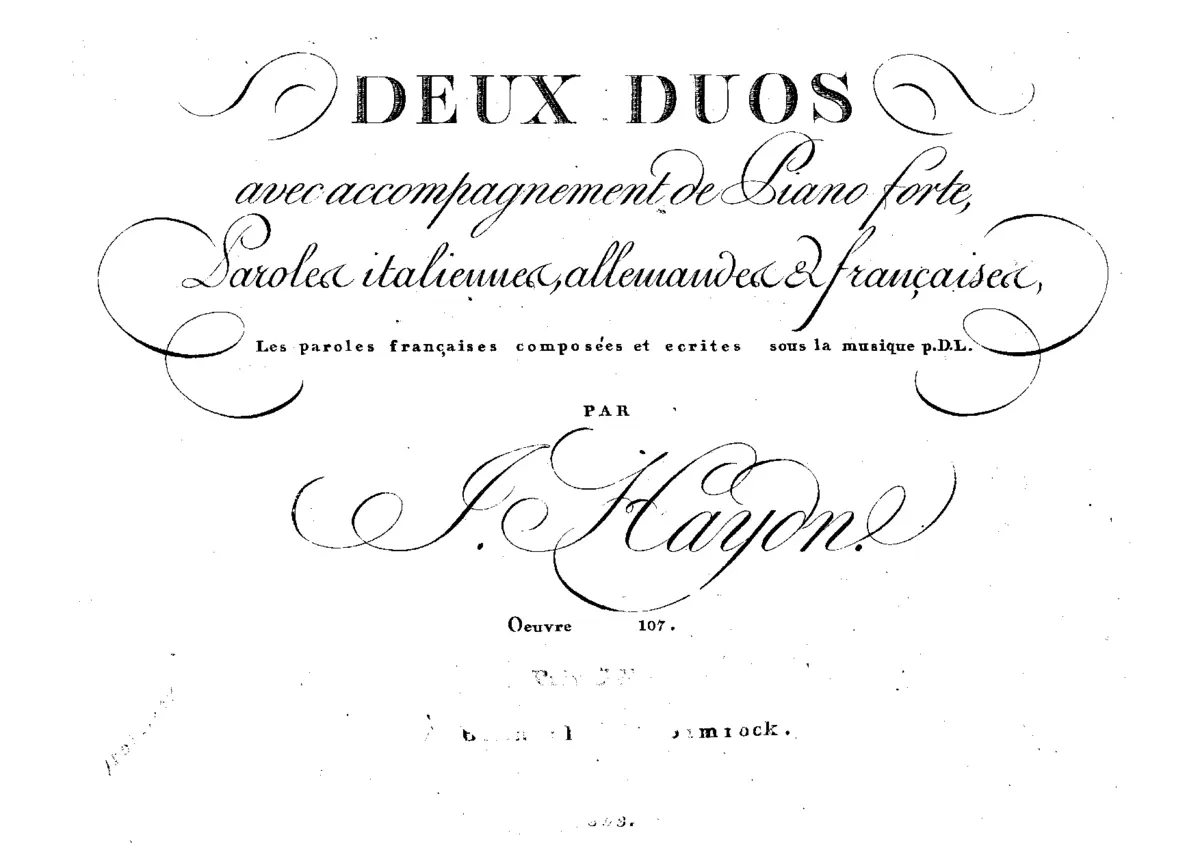 DEUX DUOS
avec accompagnement de Piano forte,
Paroles italiennes, allemandes & françaises,
Les paroles françaises composées et ecrites sous la musique p.D.L.
PAR
J. Haydn.
Oeuvre 107.